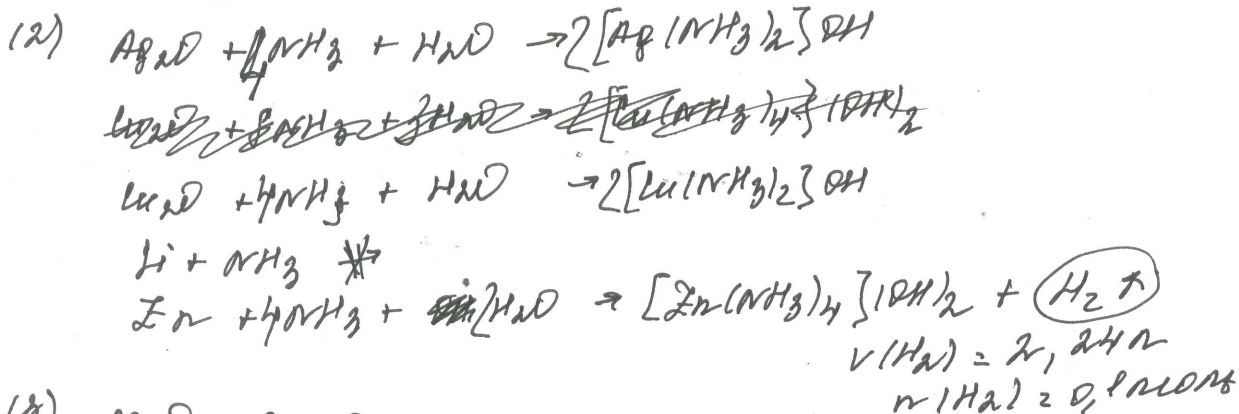 (2) Ag₂O + 4NH₃ + H₂O → 2[Ag(NH₃)₂]OH
Cu₂O + 4NH₃ + H₂O → 2[Cu(NH₃)₂]OH
Si + NH₃ ↛
Zn + 4NH₃ + 2H₂O → [Zn(NH₃)₄](OH)₂ + H₂ ↑
V(H₂) = 2,24л
n(H₂) = 0,1моль